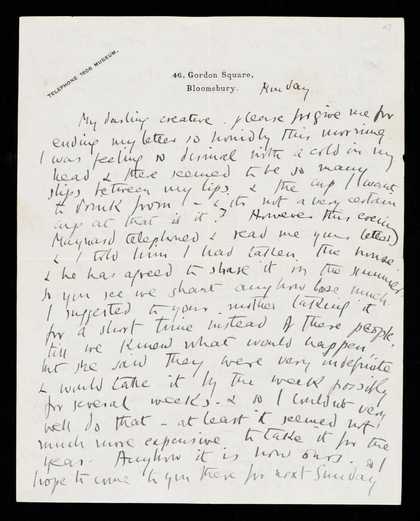 TELEPHONE 1608 MUSEUM.
46, Gordon Square,
Bloomsbury.
Sunday
My darling creature. please forgive me for
ending my letter so horridly this morning
I was feeling so dismal with a cold in my
head & there seemed to be so many
slips between my lips & the cup I want
to drink from – & its not a very certain
cup at that is it? However this evening
Maynard telephoned & read me your letter
& I told him I had taken the house
& he has agreed to share it in the summer
so you see we shant anyhow lose much
I suggested to your mother taking it
for a short time instead of these people
till we know what would happen
but she said they were very indefinite
& would take it by the week possibly
for several weeks – & so I couldnt very
well do that – at least it seemed not
much more expensive to take it for the
year. Anyhow it is now ours. & I
hope to come to you there for next Sunday